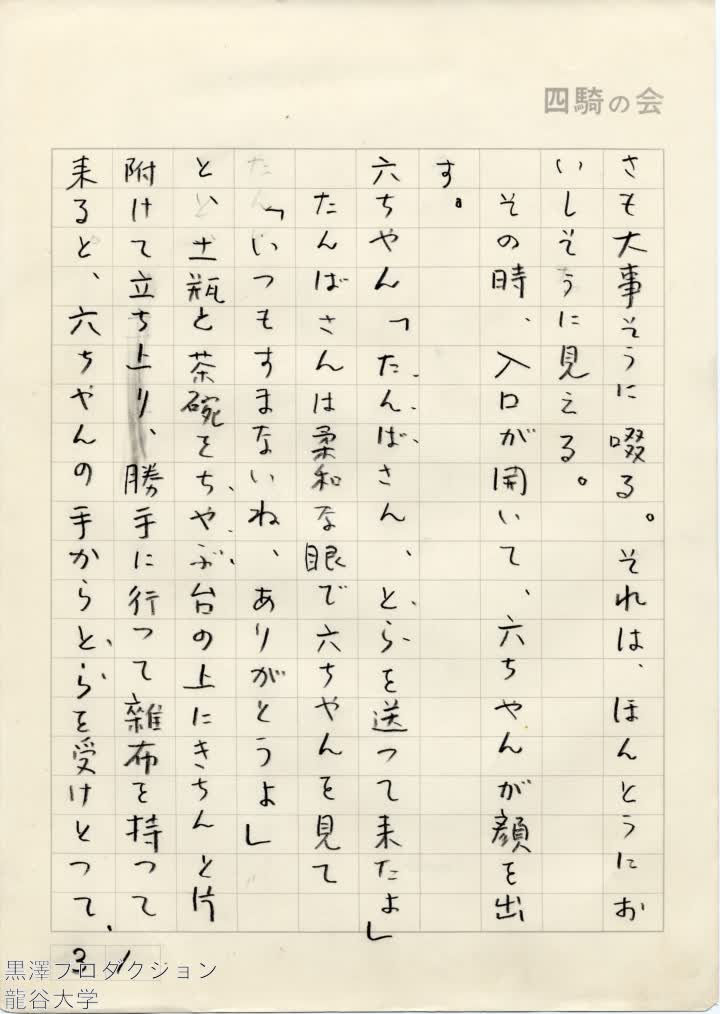 四騎の会
さも大事そうに啜る。それは、ほんとうにお
いしそうに見える。
その時、入口が開いて、六ちやんが顔を出
す。
六ちやん「たんばさん、とらを送つて来たよ」
たんばさんは柔和な眼で六ちやんを見て
「いつもすまないね、ありがとうよ」
と、土瓶と茶碗をちやぶ台の上にきちんと片
附けて立ち上り、勝手に行つて雑布を持つて
来ると、六ちやんの手からとらを受けとつて、
31
黒澤プロダクション
龍谷大学